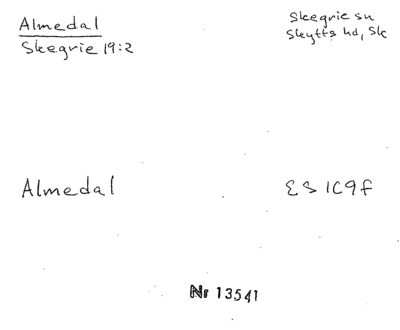 Almedal
Skegrie 19:2
Skegrie sn
Skytts hd, Sk
Almedal
ES 1C9f
Nr 13541